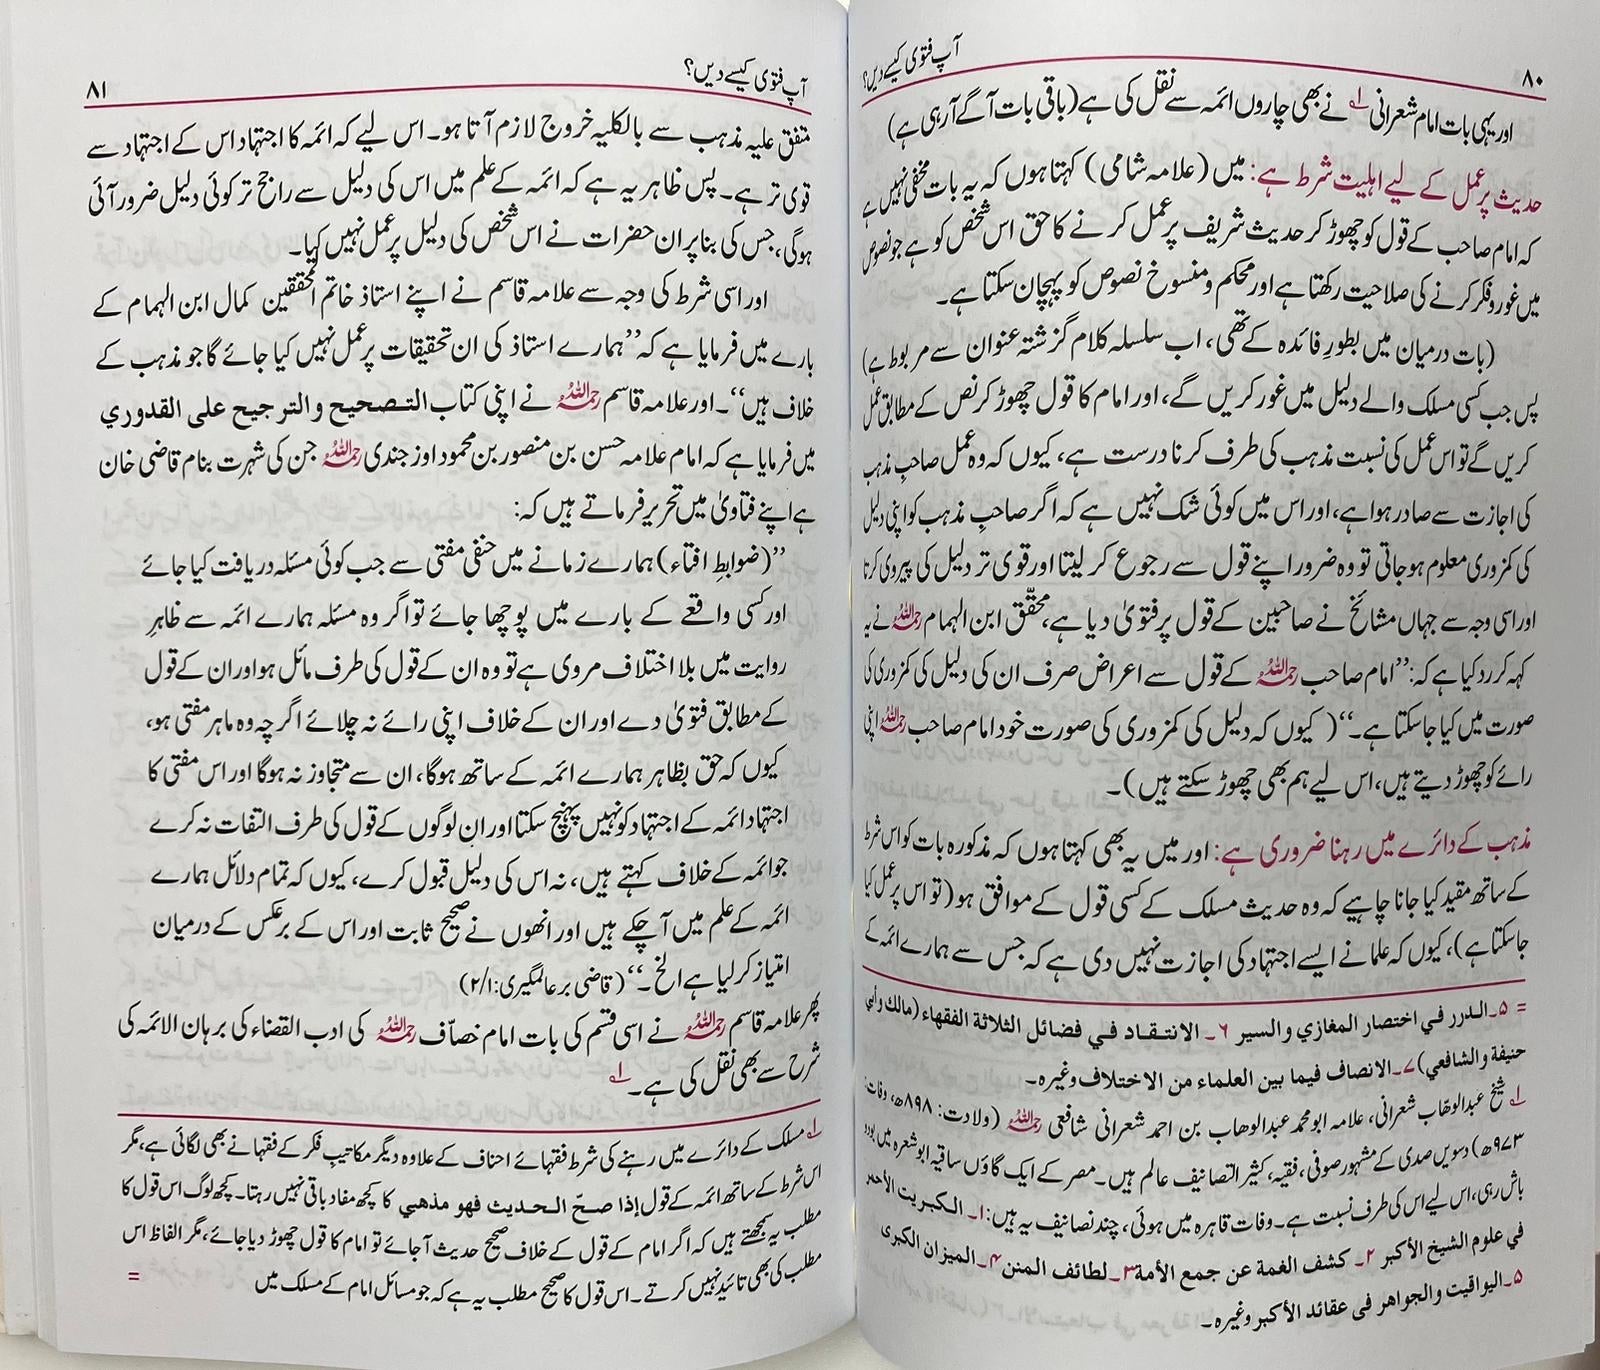 ۸۰
آپ فتویٰ کیسے دیں؟
اور یہی بات امام شعرانی ؎۱ نے بھی چاروں ائمہ سے نقل کی ہے (باقی بات آگے آرہی ہے)
حدیث پر عمل کے لیے اہلیت شرط ہے: میں (علامہ شامی) کہتا ہوں کہ یہ بات مخفی نہیں ہے
کہ امام صاحب کے قول کو چھوڑ کر حدیث شریف پر عمل کرنے کا حق اس شخص کو ہے جو نصوص
میں غور و فکر کرنے کی صلاحیت رکھتا ہے اور محکم و منسوخ نصوص کو پہچان سکتا ہے۔
(بات درمیان میں بطورِ فائدہ کے تھی، اب سلسلہ کلام گزشتہ عنوان سے مربوط ہے)
پس جب کسی مسلک والے دلیل میں غور کریں گے، اور امام کا قول چھوڑ کر نص کے مطابق عمل
کریں گے تو اس عمل کی نسبت مذہب کی طرف کرنا درست ہے، کیوں کہ وہ عمل صاحبِ مذہب
کی اجازت سے صادر ہوا ہے، اور اس میں کوئی شک نہیں ہے کہ اگر صاحبِ مذہب کو اپنی دلیل
کی کمزوری معلوم ہوجاتی تو وہ ضرور اپنے قول سے رجوع کر لیتا اور قوی تر دلیل کی پیروی کرتا
اور اسی وجہ سے جہاں مشائخ نے صاحبین کے قول پر فتویٰ دیا ہے، محقّق ابن الہمام رحمہ اللہ نے یہ
کہہ کر رد کیا ہے کہ: ’’امام صاحب رحمہ اللہ کے قول سے اعراض صرف ان کی دلیل کی کمزوری کی
صورت میں کیا جاسکتا ہے۔‘‘ (کیوں کہ دلیل کی کمزوری کی صورت خود امام صاحب رحمہ اللہ اپنی
رائے کو چھوڑ دیتے ہیں، اس لیے ہم بھی چھوڑ سکتے ہیں)۔
مذہب کے دائرے میں رہنا ضروری ہے: اور میں یہ بھی کہتا ہوں کہ مذکورہ بات کو اس شرط
کے ساتھ مقید کیا جانا چاہیے کہ وہ حدیث مسلک کے کسی قول کے موافق ہو (تو اس پر عمل کیا
جاسکتا ہے)، کیوں کہ علما نے ایسے اجتہاد کی اجازت نہیں دی ہے کہ جس سے ہمارے ائمہ کے
= ۵۔ الدرر في اختصار المغازي والسير ۶۔ الانتقاد في فضائل الثلاثة الفقهاء (مالك وأبي
حنيفة والشافعي) ۷۔ الانصاف فيما بين العلماء من الاختلاف وغیرہ۔
؎۱ شیخ عبدالوھّاب شعرانی، علامہ ابومحمد عبدالوھاب بن احمد شعرانی شافعی رحمہ اللہ (ولادت: ۸۹۸ھ، وفات:
۹۷۳ھ) دسویں صدی کے مشہور صوفی، فقیہ، کثیر التصانیف عالم ہیں۔ مصر کے ایک گاؤں ساقیہ ابوشعرہ میں بود و
باش رہی، اس لیے اس کی طرف نسبت ہے۔ وفات قاہرہ میں ہوئی، چند تصانیف یہ ہیں: ۱۔ الكبريت الأحمر
في علوم الشيخ الأكبر ۲۔ كشف الغمة عن جمع الأمة ۳۔ لطائف المنن ۴۔ الميزان الكبرى
۵۔ اليواقيت والجواهر في عقائد الأكبر وغیرہ۔
آپ فتویٰ کیسے دیں؟
۸۱
متفق علیہ مذہب سے بالکلیہ خروج لازم آتا ہو۔ اس لیے کہ ائمہ کا اجتہاد اس کے اجتہاد سے
قوی تر ہے۔ پس ظاہر یہ ہے کہ ائمہ کے علم میں اس کی دلیل سے راجح تر کوئی دلیل ضرور آئی
ہوگی، جس کی بنا پر ان حضرات نے اس شخص کی دلیل پر عمل نہیں کیا۔
اور اسی شرط کی وجہ سے علامہ قاسم نے اپنے استاذ خاتم المحققین کمال ابن الہمام کے
بارے میں فرمایا ہے کہ ’’ہمارے استاذ کی ان تحقیقات پر عمل نہیں کیا جائے گا جو مذہب کے
خلاف ہیں‘‘۔ اور علامہ قاسم رحمہ اللہ نے اپنی کتاب التصحيح والترجيح على القدوري
میں فرمایا ہے کہ امام علامہ حسن بن منصور بن محمود اوزجندی رحمہ اللہ جن کی شہرت بنام قاضی خان
ہے اپنے فتاویٰ میں تحریر فرماتے ہیں کہ:
’’(ضوابطِ افتاء) ہمارے زمانے میں حنفی مفتی سے جب کوئی مسئلہ دریافت کیا جائے
اور کسی واقعے کے بارے میں پوچھا جائے تو اگر وہ مسئلہ ہمارے ائمہ سے ظاہرِ
روایت میں بلا اختلاف مروی ہے تو وہ ان کے قول کی طرف مائل ہو اور ان کے قول
کے مطابق فتویٰ دے اور ان کے خلاف اپنی رائے نہ چلائے اگرچہ وہ ماہر مفتی ہو،
کیوں کہ حق بظاہر ہمارے ائمہ کے ساتھ ہوگا، ان سے متجاوز نہ ہوگا اور اس مفتی کا
اجتہاد ائمہ کے اجتہاد کو نہیں پہنچ سکتا اور ان لوگوں کے قول کی طرف التفات نہ کرے
جو ائمہ کے خلاف کہتے ہیں، نہ اس کی دلیل قبول کرے، کیوں کہ تمام دلائل ہمارے
ائمہ کے علم میں آچکے ہیں اور انھوں نے صحیح ثابت اور اس کے برعکس کے درمیان
امتیاز کر لیا ہے الخ۔‘‘ (قاضی بر عالمگیری: ۲/۱)
پھر علامہ قاسم رحمہ اللہ نے اسی قسم کی بات امام خصّاف رحمہ اللہ کی ادب القضاء کی برہان الائمہ کی
شرح سے بھی نقل کی ہے۔ ؎۱
؎۱ مسلک کے دائرے میں رہنے کی شرط فقہائے احناف کے علاوہ دیگر مکاتیبِ فکر کے فقہا نے بھی لگائی ہے، مگر
اس شرط کے ساتھ ائمہ کے قول إذا صحّ الحديث فهو مذهبي کا کچھ مفاد باقی نہیں رہتا۔ کچھ لوگ اس قول کا
مطلب یہ سمجھتے ہیں کہ اگر امام کے قول کے خلاف صحیح حدیث آجائے تو امام کا قول چھوڑ دیا جائے، مگر الفاظ اس
مطلب کی بھی تائید نہیں کرتے۔ اس قول کا صحیح مطلب یہ ہے کہ جو مسائل امام کے مسلک میں =